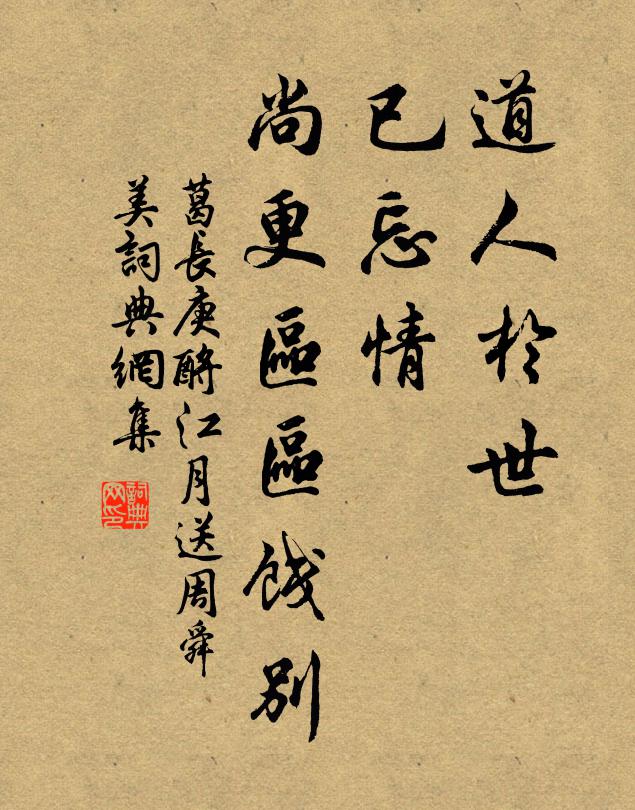 道人於世
已忘情
尚更區區餞別
葛長庚酹江月送周舜
美詞典網集
詞典
网印